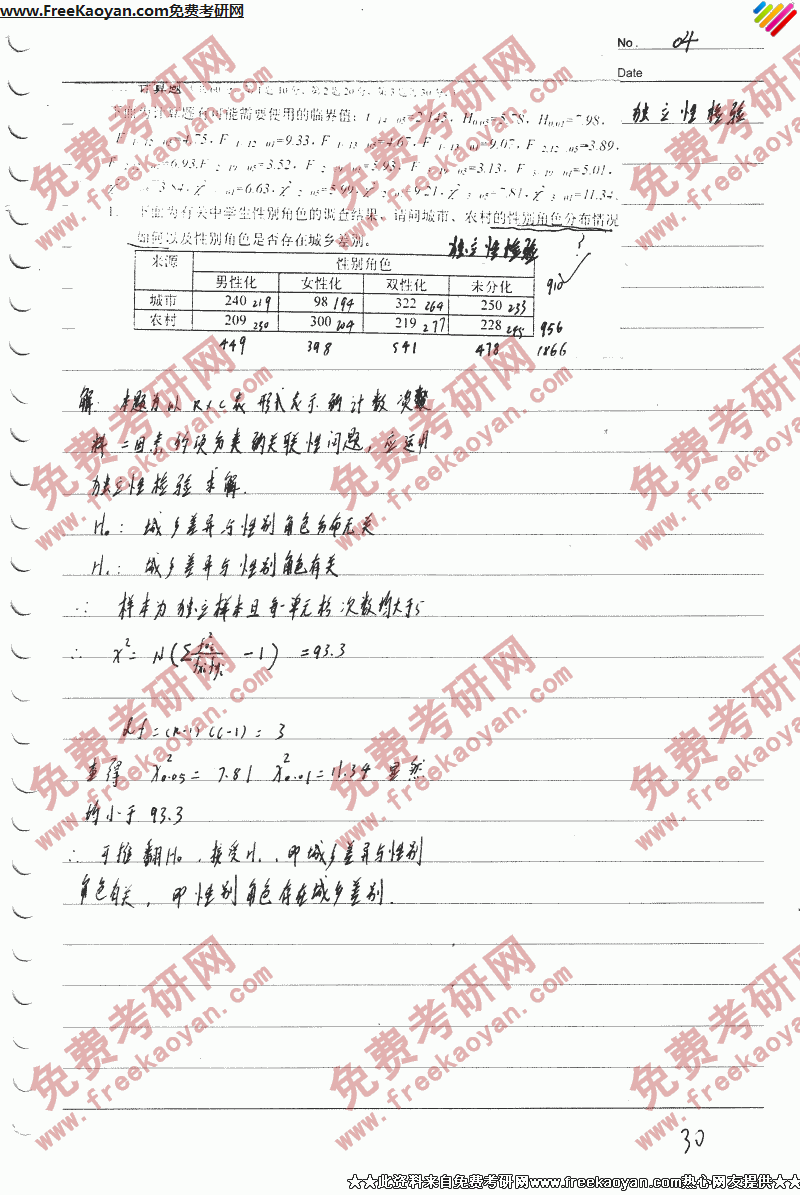 www.FreeKaoyan.com免费考研网
No. 04
Date
计算题
下面为计算题有可能需要使用的临界值:
=2.143, H0.05=5.78, H0.01=7.98,
=4.75, F 1·12 .01=9.33, F 1·13 .05=4.67, F 1·13 .01=9.07, F 2·12 .05=3.89,
=6.93, F =3.52, F =5.93, F =3.13, F =5.01,
=3.84, χ² 1 .01=6.63, χ² 2 .05=5.99, χ² 2 .01=9.21, χ² 3 .05=7.81, χ² 3 .01=11.34.
独立性检验
1. 下面为有关中学生性别角色的调查结果。请问城市、农村的性别角色分布情况
如何以及性别角色是否存在城乡差别。
独立性检验
来源 性别角色
男性化 女性化 双性化 未分化
城市 240 219 98 194 322 264 250 233 910
农村 209 230 300 204 219 277 228 245 956
449 398 541 478 1866
解: 本题为以 R×C表 形式表示的计数次数
料 二因素的项分类的关联性问题, 应运用
独立性检验求解.
H₀: 城乡差异与性别角色分布无关
H₁: 城乡差异与性别角色有关
∵ 样本为独立样本且每一单元格次数均大于5
∴ χ²=N(Σ f²oi / fxi fyi − 1) = 93.3
df=(R-1)(C-1)= 3
查得 χ²0.05= 7.81 χ²0.01=11.34 显然
均小于 93.3
∴ 可推翻H₀, 接受H₁, 即城乡差异与性别
角色有关, 即性别角色存在城乡差别.
30
★★此资料来自免费考研网www.freekaoyan.com热心网友提供★★
免费考研网
www.freekaoyan.com